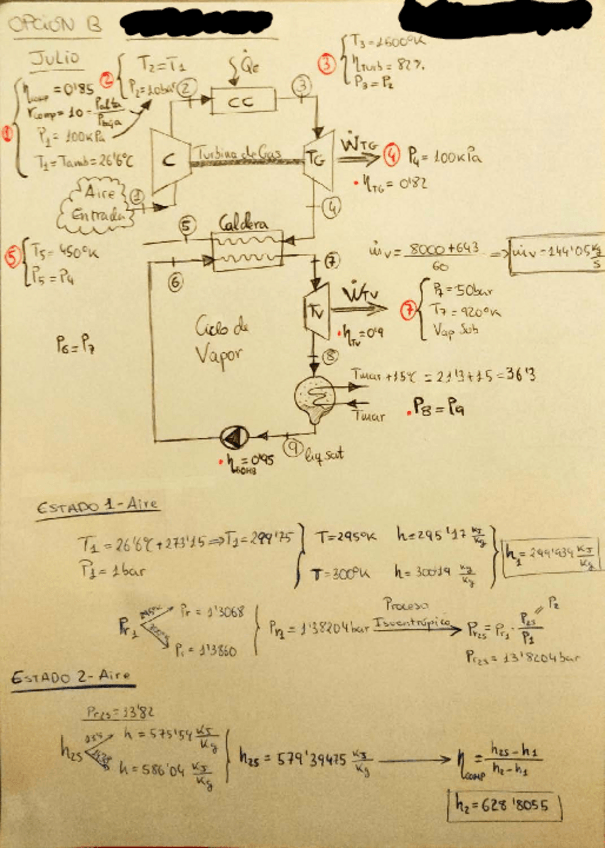 OPCIÓN B
JULIO
① η comp = 0'85
r comp = 10 = P alta / P baja
P1 = 100 kPa
T1 = Tamb = 26'6°C
② T2 = T1
P2 = 10 bar
Q̇c
CC
③ T3 = 1500°K
η Turb = 82%
P3 = P2
②
③
C
Turbina de Gas
TG
ẆTG
④ P4 = 100 kPa
• ηTG = 0'82
Aire
Entrada
①
④
⑤ T5 = 450°K
P5 = P4
⑤
Caldera
⑥
⑦
ṁv = 8000 + 643 / 60 ⇒ ṁv = 144'05 kg/s
TV
ẆTV
• ηTV = 0'9
⑦ P7 = 50 bar
T7 = 920°K
Vap Sob
P6 = P7
Ciclo de
Vapor
⑧
Tmar + 15°C = 21'3 + 15 = 36'3
Tmar
• P8 = P9
• η BOMB = 0'95
⑨ liq sat
ESTADO 1 - Aire
T1 = 26'6°C + 273'15 ⇒ T1 = 299'75
P1 = 1 bar
T = 295°K h = 295'17 kJ/kg
T = 300°K h = 300'19 kJ/kg
h1 = 299'934 kJ/kg
Pr1
295°K Pr = 1'3068
300°K Pr = 1'3860
Pr1 = 1'38204 bar
Proceso
Isoentrópico
Pr2s = Pr1 · P2s / P1
P2
Pr2s = 13'8204 bar
ESTADO 2 - Aire
Pr2s = 13'82
h2s
h = 575'59 kJ/kg
h = 586'04 kJ/kg
h2s = 579'39475 kJ/kg
η COMP = h2s - h1 / h2 - h1
h2 = 628'8055